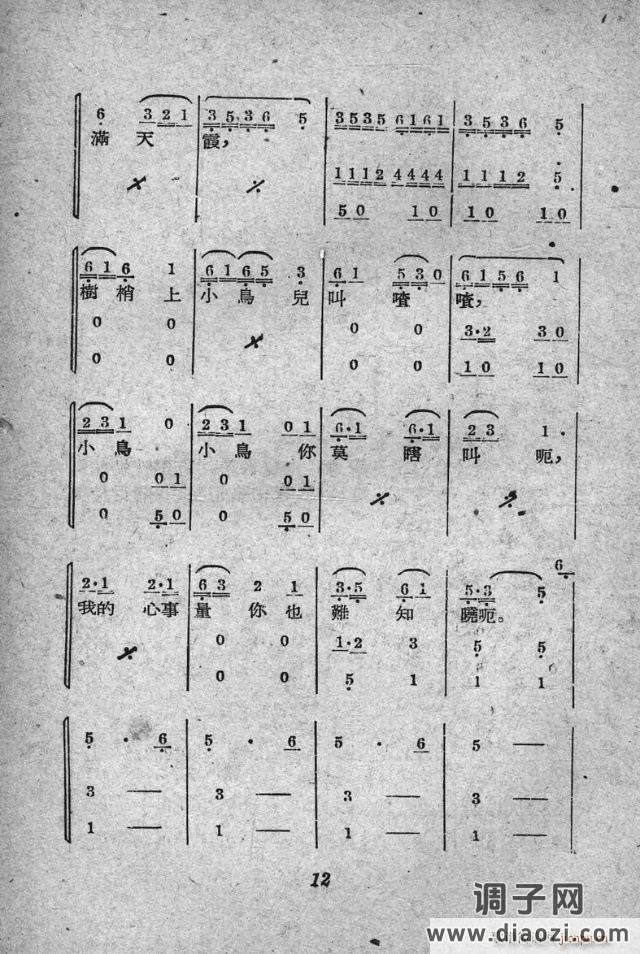 6 3 2 1 3 5 3 6 5 3 5 3 5 6 1 6 1 3 5 3 6 5
滿 天 霞,
1 1 1 2 4 4 4 4 1 1 1 2 5
5 0 1 0 1 0 1 0
6 1 6 1 6 1 6 5 3 6 1 5 3 0 6 1 5 6 1
樹 梢 上 小 鳥 兒 叫 喳 喳,
0 0 0 0 3·2 3 0
0 0 0 0 1 0 1 0
2 3 1 0 2 3 1 0 1 6·1 6·1 2 3 1·
小 鳥 小 鳥 你 莫 瞎 叫 呃,
0 0 1 0 0 1
0 5 0 0 5 0
2·1 2·1 6 3 2 1 3·5 6 i 5·3 5 6
我的 心事 量 你 也 難 知 曉呃。
0 0 1·2 3 5 5
0 0 5 1 1 1
5 · 6 5 · 6 5 · 6 5 —
3 — 3 — 3 — 3 —
1 — 1 — 1 — 1 —
12
调子网
www.diaozi.com